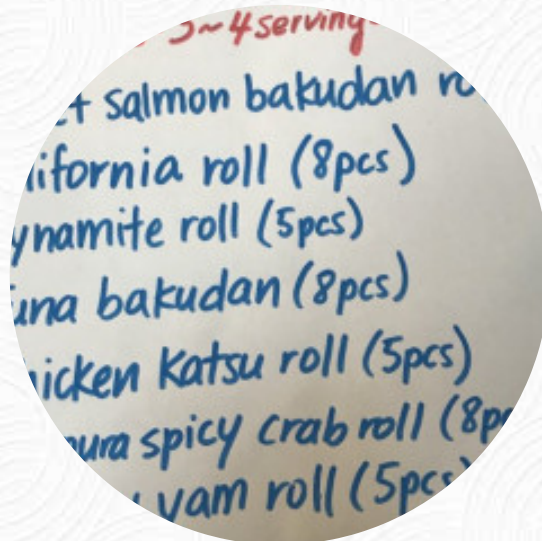 3~4 serving
salmon bakudan
ifornia roll (8pcs)
ynamite roll (5pcs)
una bakudan (8pcs)
icken Katsu roll (5pcs)
ura spicy crab roll (8p
yam roll (5pcs)